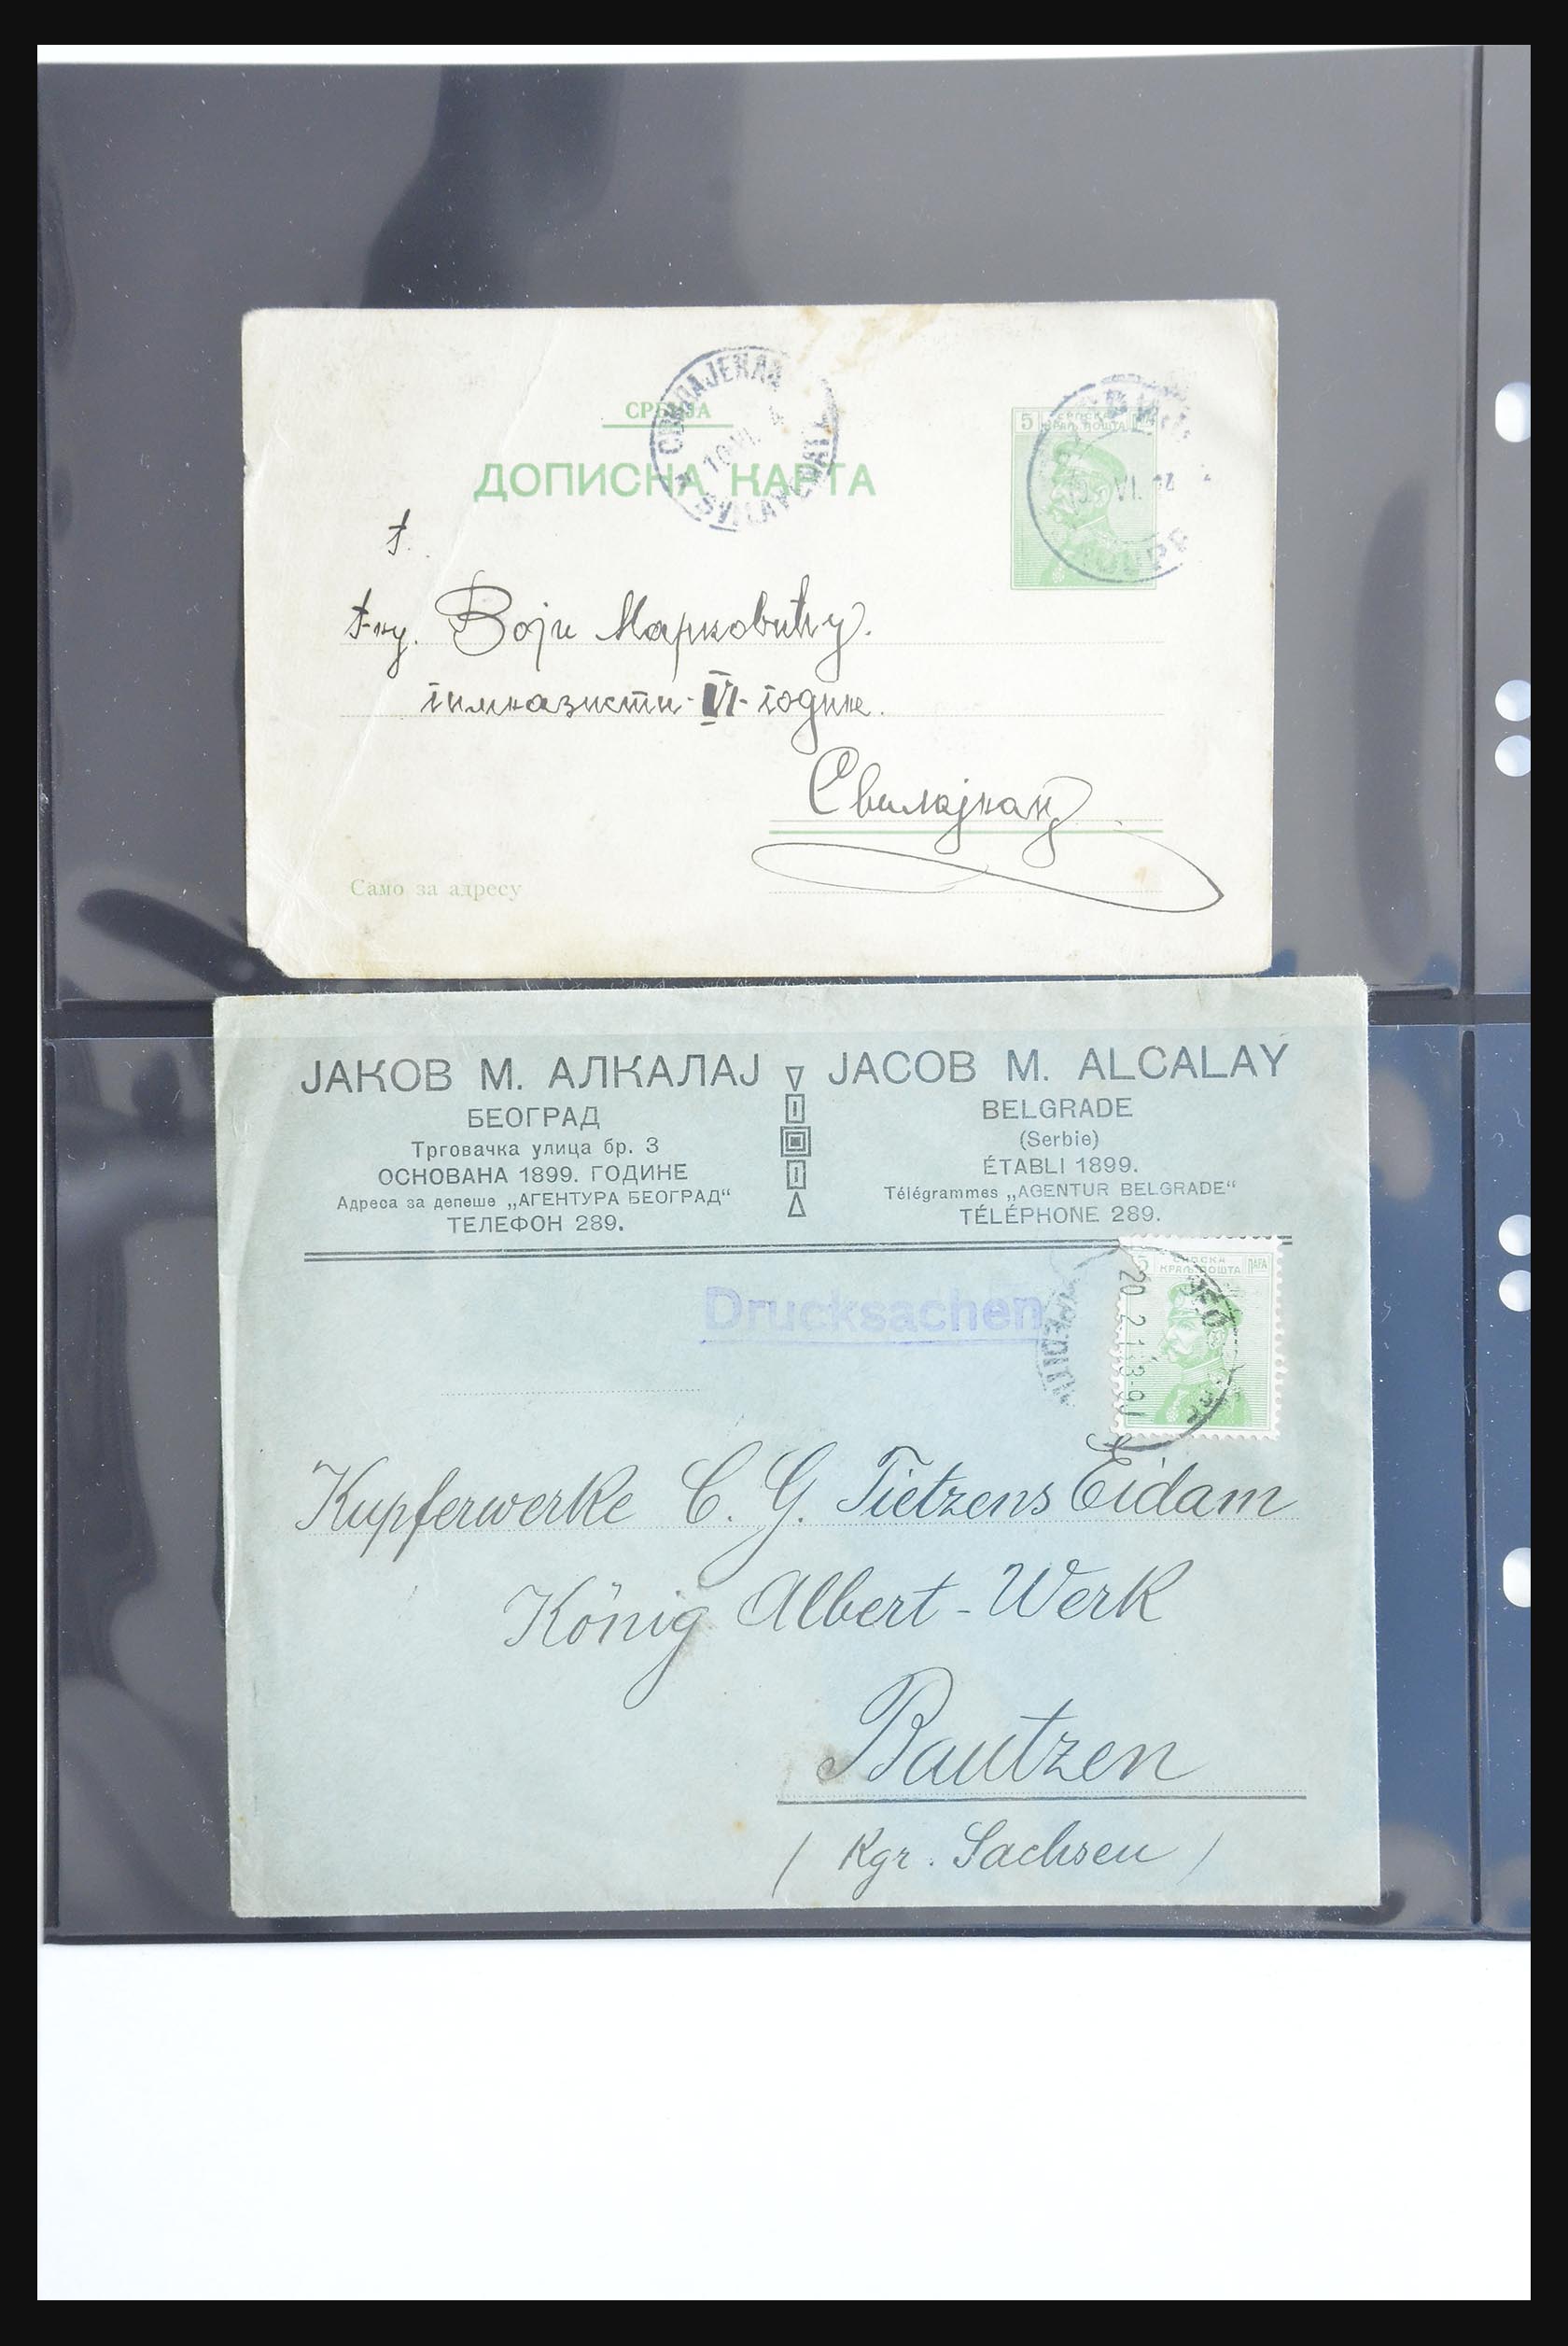 СРБИЈА
ДОПИСНА КАРТА
5 СРПСКА
КРАЉ. ПОШТА
VI. 14
г.
г-ну. Воји Марковићу.
гимназисти - VI - године.
Свилајнац
Само за адресу
ЈАКОВ М. АЛКАЛАЈ
БЕОГРАД
Трговачка улица бр. 3
ОСНОВАНА 1899. ГОДИНЕ
Адреса за депеше „АГЕНТУРА БЕОГРАД“
ТЕЛЕФОН 289.
JACOB M. ALCALAY
BELGRADE
(Serbie)
ÉTABLI 1899.
Télégrammes „AGENTUR BELGRADE“
TÉLÉPHONE 289.
5 СРПСКА ПАРА
КРАЉ. ПОШТА
20. 2. 13-9
Drucksachen
Kupferwerke C. G. Tietzens Eidam
König Albert-Werk
Bautzen
/ Kgr. Sachsen /